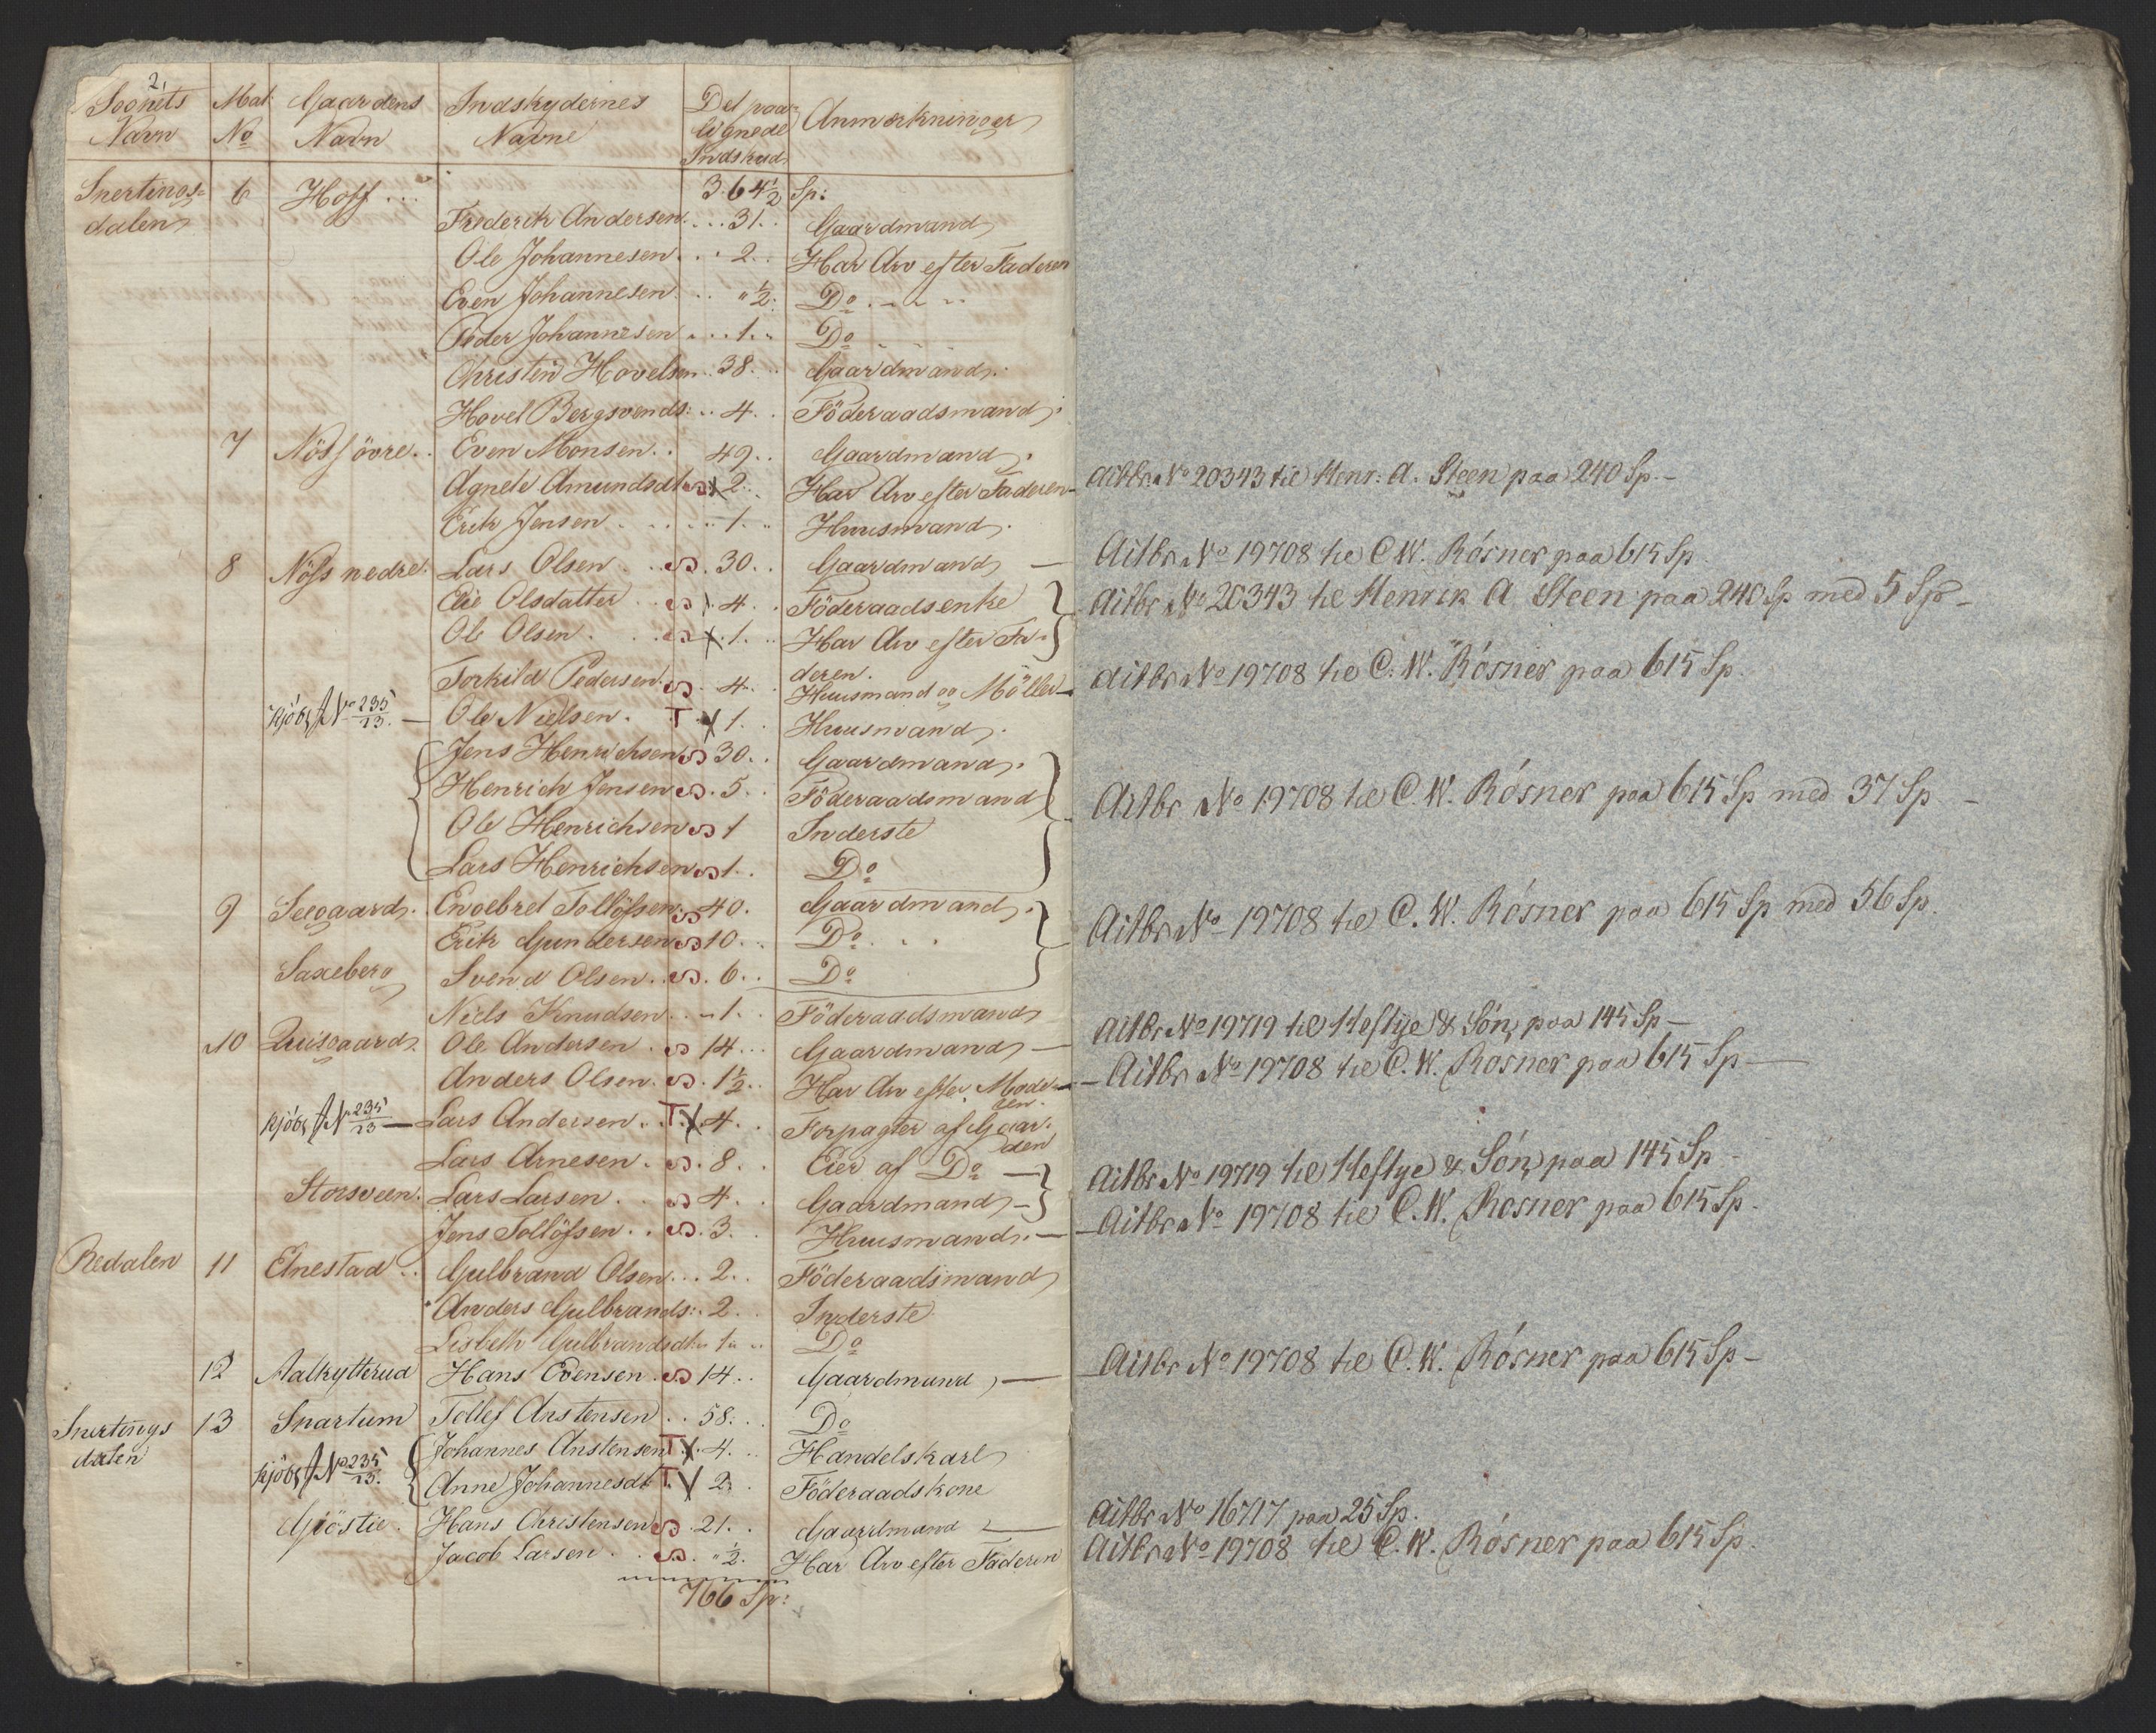 2.
Sognets Navn | Mat: No | Gaardens Navn | Indskydernes Navne | Det paalignede Indskud | Anmærkninger
Snertings= 6 Hoff ... 3.64½ Sp:
dalen Frederik Andersen ... 31.. Gaardmand
Ole Johannesen ... 2.. Har Arv efter Faderen
Even Johannesen ... " ½: Do ...
Peder Johannesen ... 1.. Do
Christen Hovelsen .. 38 .. Gaardmand.
Hovel Bergsvends: .. 4 .. Föderaadsmand.
7 Nöss övre .. Even Monsen .. 49 .. Gaardmand.
Agnete Amundsdt S X 2 .. Har Arv efter Faderen –
Erik Jensen ..... 1 .. Huusmand.
8 Nöss nedre. Lars Olsen .. S. 30 .. Gaardmand —
Elie Olsdatter .. S X 4 .. Föderaadsenke
Ole Olsen .. S X 1 .. Har Arv efter Fa=
deren.
Torkild Pedersen. S. 4 .. Huusmand og Möller –
Kjöbs No 235/13. — Ole Nielsen . T X 1 .. Huusmand.
Jens Henrichsen S 30 .. Gaardmand.
Henrich Jensen S. 5 .. Föderaadsmand
Ole Henrichsen S 1 Inderste
Lars Henrichsen S 1 .. Do
9 Seegaard. Engebret Tollöfsen. S 40. Gaardmand.
Erik Gundersen S 10 .. Do ...
Saxeberg Svend Olsen .. S. 6 .. Do
Niels Knudsen .. – 1 .. Föderaadsmand
10 Qviisgaard. Ole Andersen . S 14 ... Gaardmand —
Anders Olsen. S. 1½ .. Har Arv efter Mode=
ren.
Kjöbs No 235/13 — Lars Andersen .. T X 4 .. Forpagter af Gaar=
den
Lars Arnesen . S. 8 .. Eier af Do —
Storsveen. Lars Larsen .. S 4 .. Gaardmand –
Jens Tollöfsen .. S. 3 .. Huusmand. —
Redalen 11 Elnestad .. Gulbrand Olsen ... 2 .. Föderaadsmand
Anders Gulbrands: . 2 .. Inderste
Lisbeth Gulbrandsdt. 1 .. Do
12 Aalkytterud Hans Evensen . S 14 .. Gaardmand, —
Snertings 13 Snartum Tollef Anstensen .. 58 ... Do
dalen Johannes Anstensen T X 4 .. Handelskarl
Kjöbs No 235/13. Anne Johannesdt T X 2 . Föderaadskone
Gjöstie. Hans Christensen S. 21 .. Gaardmand —
Jacob Larsen .. S. " ½. Har Arv efter Faderen
766 Sp:
Aitbr. No 20343 til Henr: A. Steen paa 240 Sp. –
Aitbr No 19708 til C. W. Rósner paa 615 Sp.
Aitbr No 20343 til Henrik A. Steen paa 240 Sp med 5 Sp –
Aitbr No 19708 til C. W. Rósner paa 615 Sp.
Aitbr No 19708 til C. W. Rósner paa 615 Sp med 37 Sp –
Aitbr No 19708 til C. W. Rósner paa 615 Sp med 56 Sp.
Aitbr No 19719 til Heftye & Són, paa 145 Sp –
– Aitbr No 19708 til C. W. Rosner paa 615 Sp —
Aitbr No 19719 til Heftye & Són paa 145 Sp –
– Aitbr No 19708 til C. W. Rosner paa 615 Sp.
– Aitbr No 19708 til C. W. Rósner paa 615 Sp –
Aitbr No 16717 paa 25 Sp.
Aitbr No 19708 til C. W. Rósner paa 615 Sp.